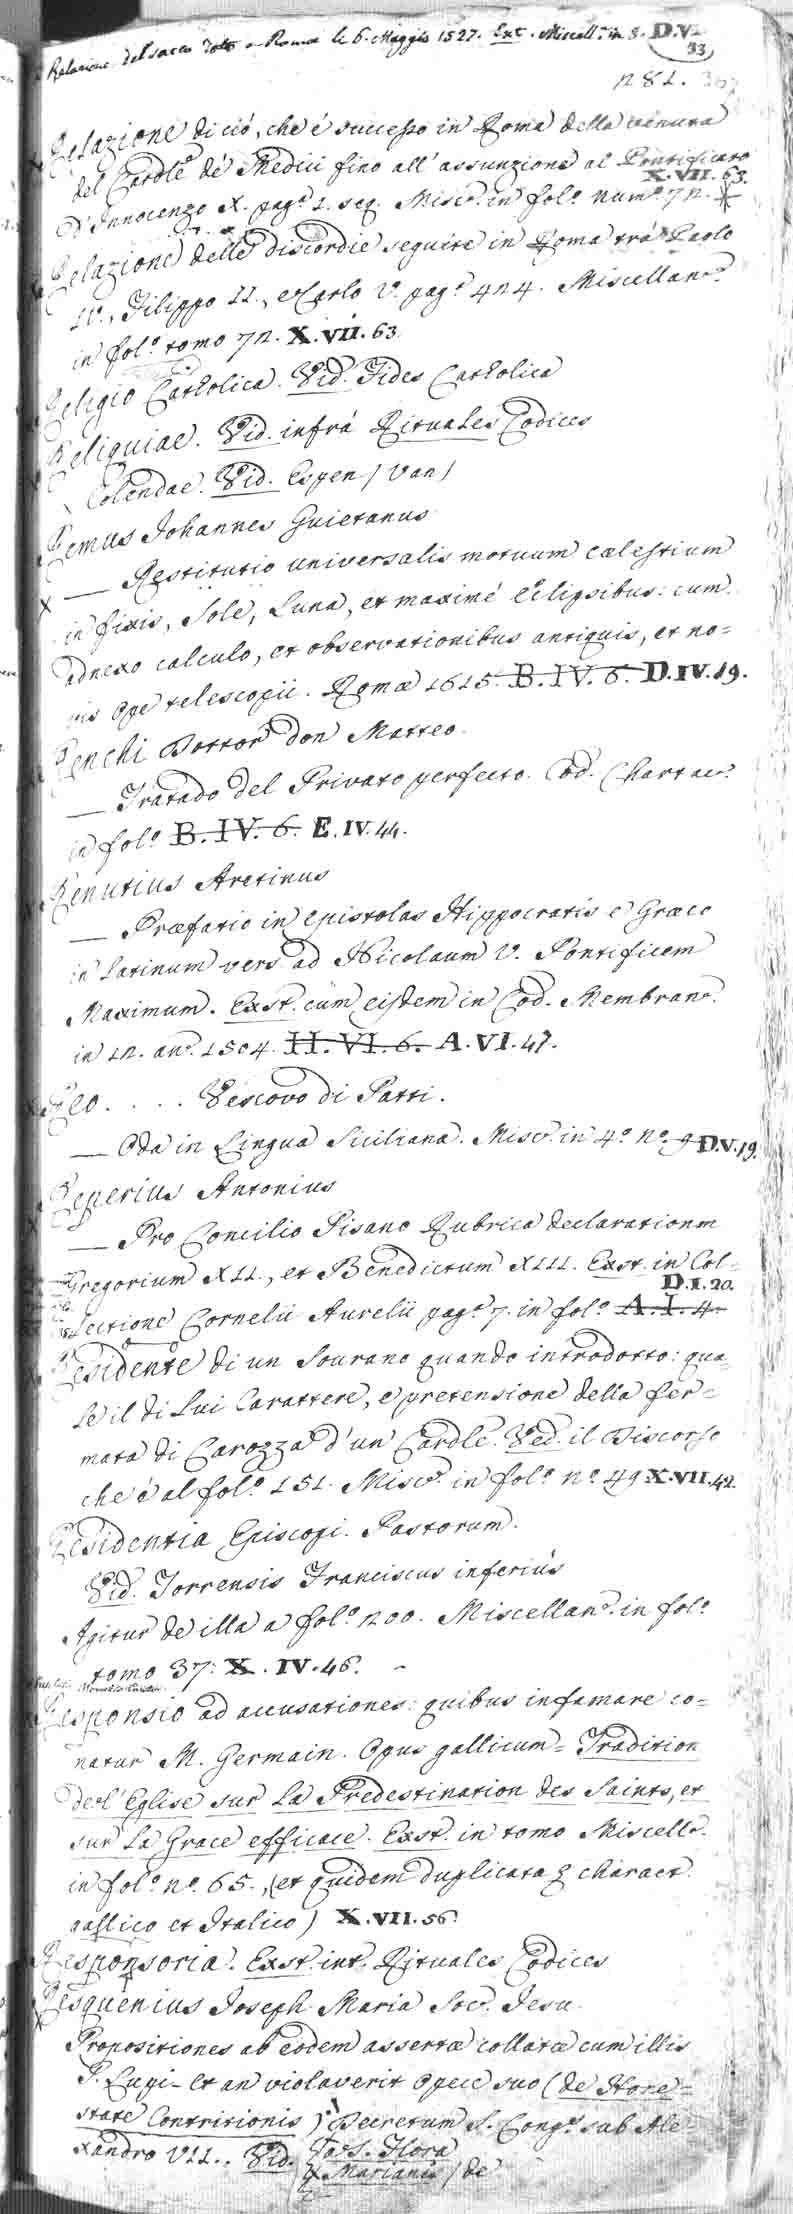 Relazione del sacco dato a Roma li 6. Maggio 1527. Ext. Miscell. in 8. D.V.
33
281. 367
Relazione di ciò, che é successo in Roma della venuta
del Cardle de' Medici fino all' assunzione al Pontificato
X.VII.63.
d'Innocenzo X. pag.ª 1. seq. Misc. in fol.º num.º 72.
Relazione delle discordie seguite in Roma trá Paolo
IV., Filippo II., e Carlo V. pag.ª 424. Miscellan.
in fol.º tomo 72. X.VII.63.
Religio Catholica. Vid. Fides Catholica
Reliquiae. Vid. infrá Rituales Codices
Colendae. Vid. Espen (Van)
Remus Johannes Quietanus
— Restitutio universalis motuum caelestium
in fixis, Sole, Luna, et maximé Eclipsibus: cum
adnexo calculo, et observationibus antiquis, et no=
vis ope telescopii. Romae 1615. B.IV.6. D.IV.19.
Renchi Dottor don Matteo.
— Tratado del Privato perfecto. Cod. Chartac.
in fol.º B.IV.6. E.IV.44.
Renutius Aretinus
— Praefatio in epistolas Hippocratis e Graeco
in Latinum vers. ad Nicolaum V. Pontificem
Maximum. Exst. cum eisdem in Cod. Membran.
in 12. an. 1504. H.VI.6. A.VI.47.
Reo. . . . . Vescovo di Patti.
— Oda in Lingua Siciliana. Misc. in 4.º n.º 9 D.V.19.
Reperius Antonius
— Pro Concilio Pisano Rubrica declarationum
Gregorium XII., et Benedictum XIII. Exst. in Col=
D.I.20.
lectione Cornelii Aurelii pag.ª 7. in fol.º A.I.4.
Residente di un Sourano quando introdotto: qua=
le il di Lui Carattere, e pretensione della fer=
mata di Carozza d'un Cardle. Ved. il Discorso
che é al fol.º 151. Misc. in fol.º n.º 49 X.VII.42.
Residentia Episcopi. Pastorum.
Vid. Torrensis Franciscus inferiùs
Agitur de illa a fol.º 200. Miscellan. in fol.º
tomo 37. X.IV.46.
Responsio ad accusationes: quibus infamare co=
natur M. Germain. Opus gallicum = Tradition
de l'Eglise sur la Predestination des Saints, et
sur la Grace efficace. Exst. in tomo Miscell.
in fol.º n.º 65., (et quidem duplicata charact.
gallico et Italico) X.VII.56.
Responsoria. Exst. int. Rituales Codices
Resquenius Joseph Maria Soc. Jesu.
Propositiones ab eodem assertae collatae cum illis
P. Lugi - et an violaverit opere suo (de Hone=
state Contritionis) Decretum S. Cong. sub Ale=
xandro VII.. Vid. Flora
Marianis (de